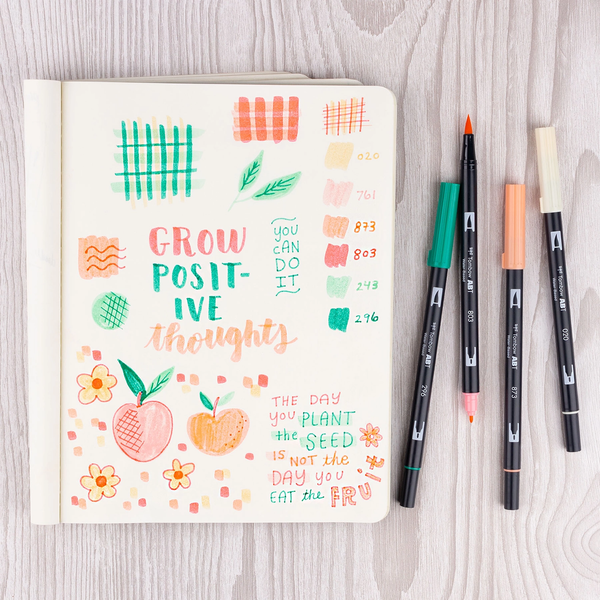 020
761
873
803
243
296
YOU
CAN
DO
IT
GROW
POSIT-
IVE
thoughts
THE DAY
YOU PLANT
the SEED
IS NOT the
DAY YOU
EAT the FRUIT
Tombow ABT
296
Tombow ABT
803
Tombow ABT
873
Tombow ABT
020